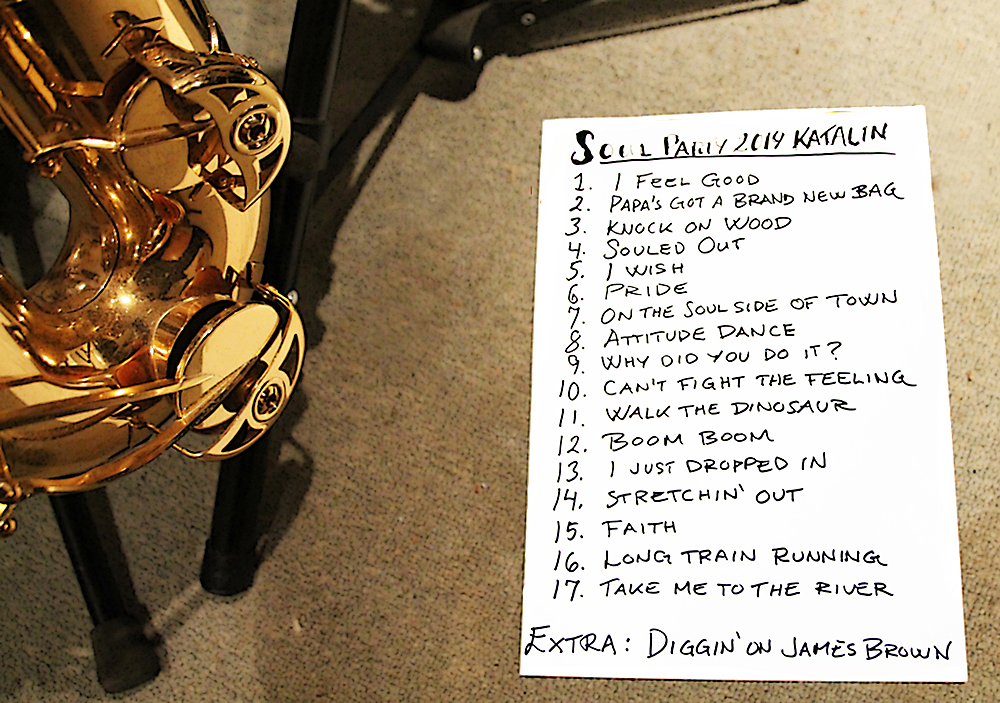 SOUL PARTY 2014 KATALIN
1. I FEEL GOOD
2. PAPA'S GOT A BRAND NEW BAG
3. KNOCK ON WOOD
4. SOULED OUT
5. I WISH
6. PRIDE
7. ON THE SOUL SIDE OF TOWN
8. ATTITUDE DANCE
9. WHY DID YOU DO IT?
10. CAN'T FIGHT THE FEELING
11. WALK THE DINOSAUR
12. BOOM BOOM
13. I JUST DROPPED IN
14. STRETCHIN' OUT
15. FAITH
16. LONG TRAIN RUNNING
17. TAKE ME TO THE RIVER
EXTRA: DIGGIN' ON JAMES BROWN